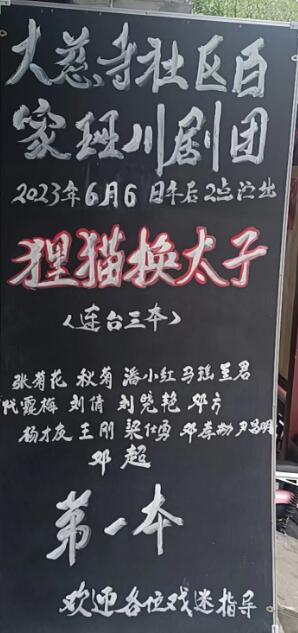 大慈寺社区百
家班川剧团
2023年6月6日午后2点演出
狸猫换太子
(连台三本)
张菊花 秋菊 潘小红 马瑶 至君
代霞梅 刘倩 刘艳 邓方
杨才友 王刚 梁仕勇 邓李劫 尹昌明
邓超
第一本
欢迎各位戏迷指导